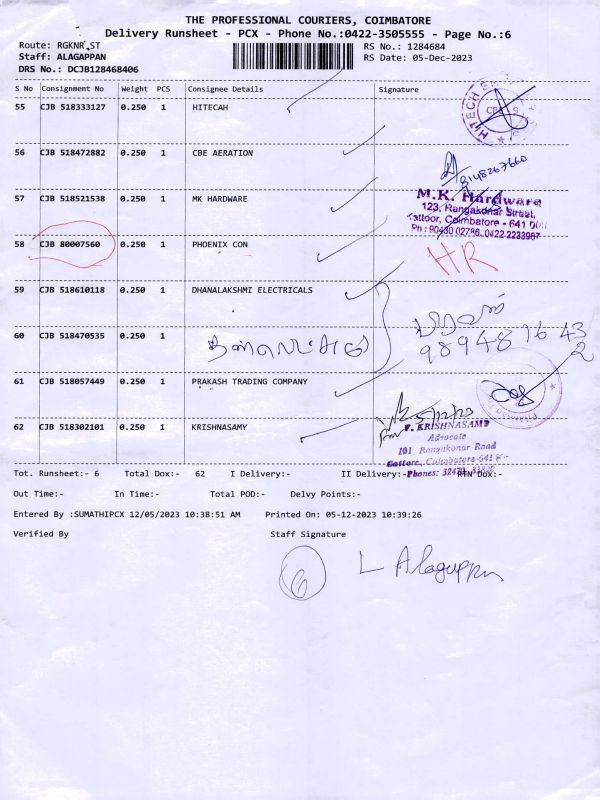 THE PROFESSIONAL COURIERS, COIMBATORE
Delivery Runsheet - PCX - Phone No.:0422-3505555 - Page No.:6
Route: RGKNR,ST
RS No.: 1284684
Staff: ALAGAPPAN
RS Date: 05-Dec-2023
DRS No.: DCJB128468406
S No Consignment No Weight PCS Consignee Details Signature
55 CJB 518333127 0.250 1 HITECAH
HITECH
56 CJB 518472882 0.250 1 CBE AERATION
8148267660
57 CJB 518521538 0.250 1 MK HARDWARE
M.K. Hardware
123, Rangakonar Street,
Kattoor, Coimbatore - 641
Ph : 90430 02786, 0422 2233967
58 CJB 80007560 0.250 1 PHOENIX CON
HR
59 CJB 518610118 0.250 1 DHANALAKSHMI ELECTRICALS
60 CJB 518470535 0.250 1
98948 16 43
2
61 CJB 518057449 0.250 1 PRAKASH TRADING COMPANY
5/12/23
62 CJB 518302101 0.250 1 KRISHNASAMY
KRISHNASAMY
Advocate
101, Rangakonar Road
Kattore, Coimbatore-641
Phones: 32470,
Tot. Runsheet:- 6 Total Dox:- 62 I Delivery:- II Delivery:- RTN Dox:-
Out Time:- In Time:- Total POD:- Delvy Points:-
Entered By :SUMATHIPCX 12/05/2023 10:38:51 AM Printed On: 05-12-2023 10:39:26
Verified By Staff Signature
6
L Alaguppan